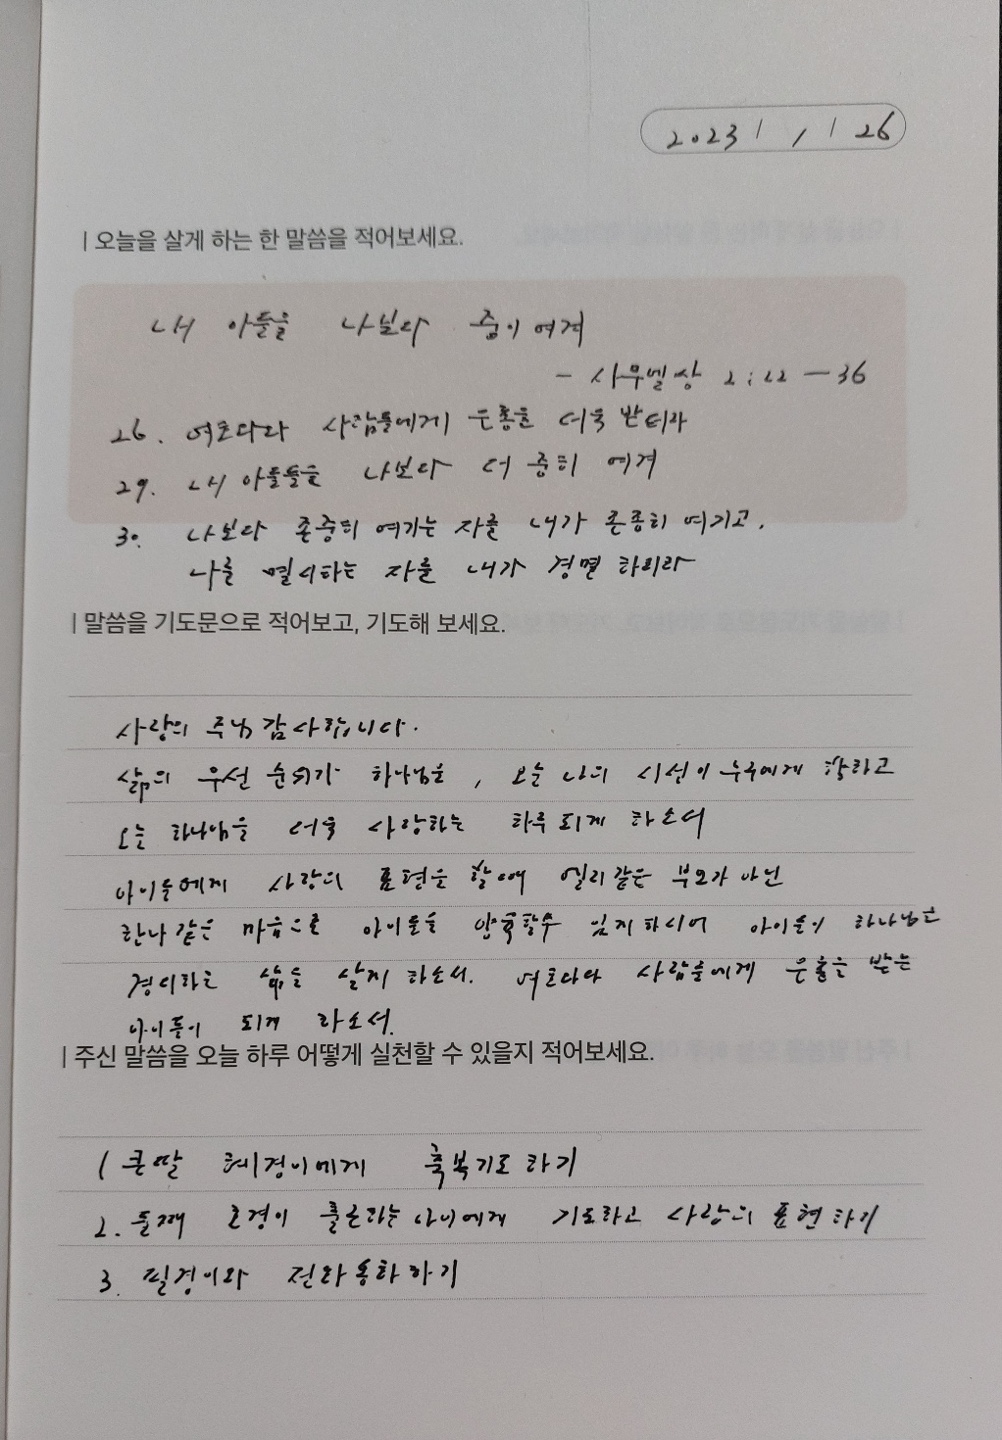 2023 / 1 / 26
| 오늘을 살게 하는 한 말씀을 적어보세요.
내 아들을 나보다 중이 여겨
- 사무엘상 2:22 - 36
26. 여호와와 사람들에게 은총을 더욱 받더라
29. 내 아들들을 나보다 더 중히 여겨
30. 나보다 존중히 여기는 자를 내가 존중히 여기고,
나를 멸시하는 자를 내가 경멸 하리라
| 말씀을 기도문으로 적어보고, 기도해 보세요.
사랑의 주님 감사합니다.
삶의 우선 순위가 하나님을, 오늘 나의 시선이 누구에게 향하고
오늘 하나님을 더욱 사랑하는 하루 되게 하소서
아이들에게 사랑의 표현을 할때 엘리같은 부모가 아닌
한나 같은 마음으로 아이들을 양육할수 있게하시어 아이들이 하나님을
경외하는 삶을 살게 하소서. 여호와와 사람들에게 은총을 받는
아이들이 되게 하소서.
| 주신 말씀을 오늘 하루 어떻게 실천할 수 있을지 적어보세요.
1 큰딸 혜경이에게 축복기도 하기
2. 둘째 에게 기도하고 사랑의 표현하기
3. 필경이와 전화통화하기